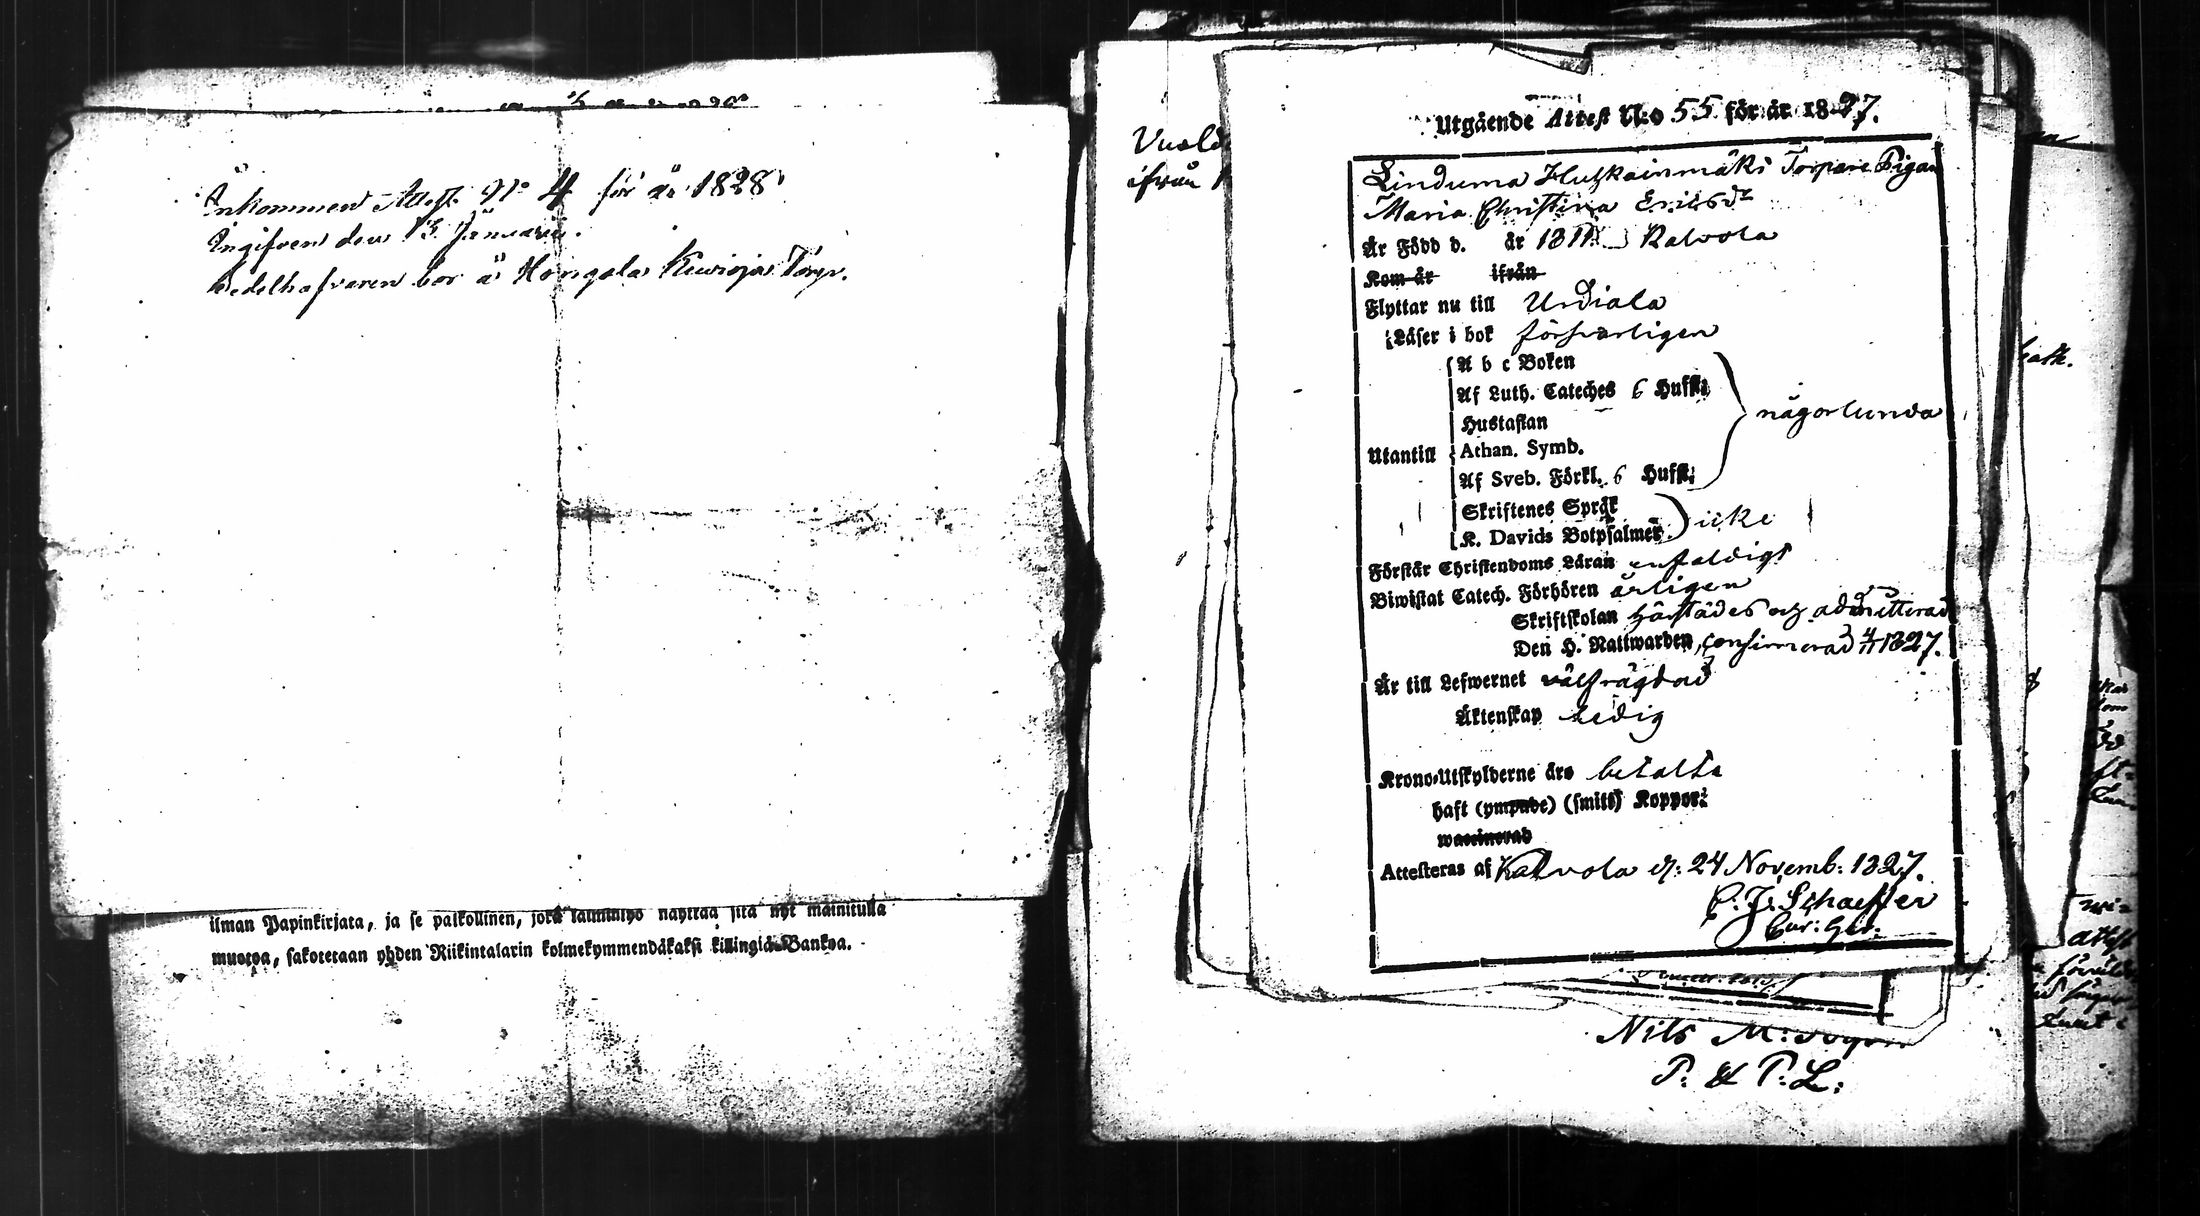 Inkommen Attest No 4 för år 1828
Ingifven den 13 Januarii.
Bedelhafvaren bor å Hongola Kuvioja Torp.
ilman Papinkirjata, ja se palkollinen, joka laiminlyö näyttää sitä nyt mainitulla
muotoa, sakotetaan yhden Riikintalarin kolmekymmendäkaksi killingiä Bankoa.
ifrån
Utgående Attest N:o 55 för år 1827.
Linduma Torpare Pigan
Maria Christina Ericsdr
Är Född d. år 1811 Kalvola
Kom år ifrån
Flyttar nu till Urdiala
Läser i bok försvarligen
A b c Boken
Af Luth. Cateches 6 Hufst:
Hustaflan
någorlunda
Utantill Athan. Symb.
Af Sveb. Förkl. 6 Hufst:
Skriftenes Språk
icke
K. Davids Botpsalmer
Förstår Christendoms Läran enfaldigt
Biwistat Catech. Förhören årligen
Skriftskolan härstädes och admitterad
Den H. Nattwarden, confirmerad 1827.
Är till Lefwernet välfrägdad
Äktenskap ledig
Krono-Utskylderne äro betalta
haft (ympade) (smitt) Koppor:
waccinerad
Attesteras af Kalvola d: 24 Novemb: 1827.
C. J. Schaeffer
Nils M:
P: & P: L: